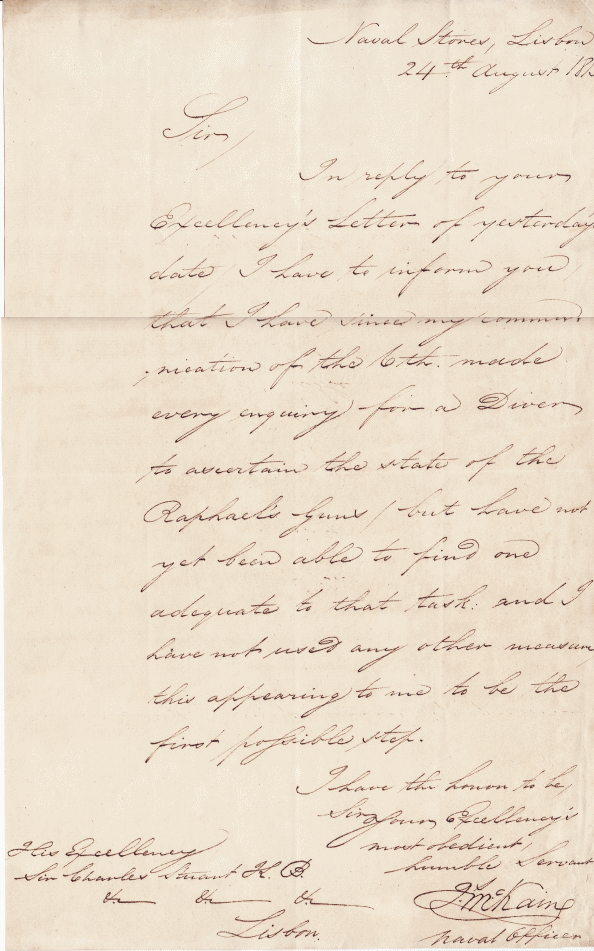 Naval Stores, Lisbon
24th August 18
Sir,
In reply to your
Excellency's Letter of yesterday's
date, I have to inform you,
that I have since my commu
-nication of the 6th. made
every enquiry for a Diver
to ascertain the state of the
Raphael's Guns, but have not
yet been able to find one
adequate to that task: and I
have not used any other measure
this appearing to me to be the
first possible step.
I have the honor to be,
Sir, Your Excellency's
most obedient,
humble Servant
J. McKain
Naval Officer
His Excellency
Sir Charles Stuart K. B.
&c &c &c
Lisbon.